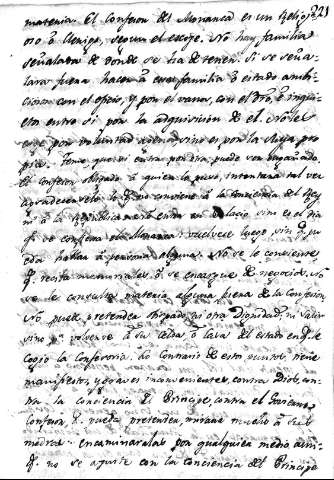 materia. El Confesor del Monarca es un Religio- 221
so, o Clerigo, segun el escoje. No hay familia
señalada de donde se ha de tener. Si se seña-
lara fuera hacer a esa familia o estado ambi-
cioson con el oficio, y por el vano, con el dro. e inqui-
etos entre si por la adquisicion de el. No se
por voluntad agena, sino es por la suya pro-
pria. Teme que si entra por otra, puede ver
el confesor obligado a quien la puso, intentara tal vez
agradecerselo lo q. no conviene a la conciencia del Rey
ni a la Republica. no entra en Palacio sino es el dia
q. se confiesa el Monarca: vuelvese luego sin q. pu-
eda hablar a persona alguna. No se le consiente
q. reciba memoriales q. se encargue de negocios. No
se le consulta materia alguna fuera de la Confesion
No puede pretender Obispado, ni otra Dignidad, ni
sino pa. volverse a su Celda o Casa del estado en q. le
cogio la Confesoria. Lo Contrario de estos puntos, tiene
manifiestos, y graves inconvenientes, contra Dios, con-
tra la conciencia del Principe, contra el
Confesor q. puede pretender, mirara mucho a sus
medras: encaminaralas por qualquiera medio
q. no se ajuste con la Conciencia del Principe